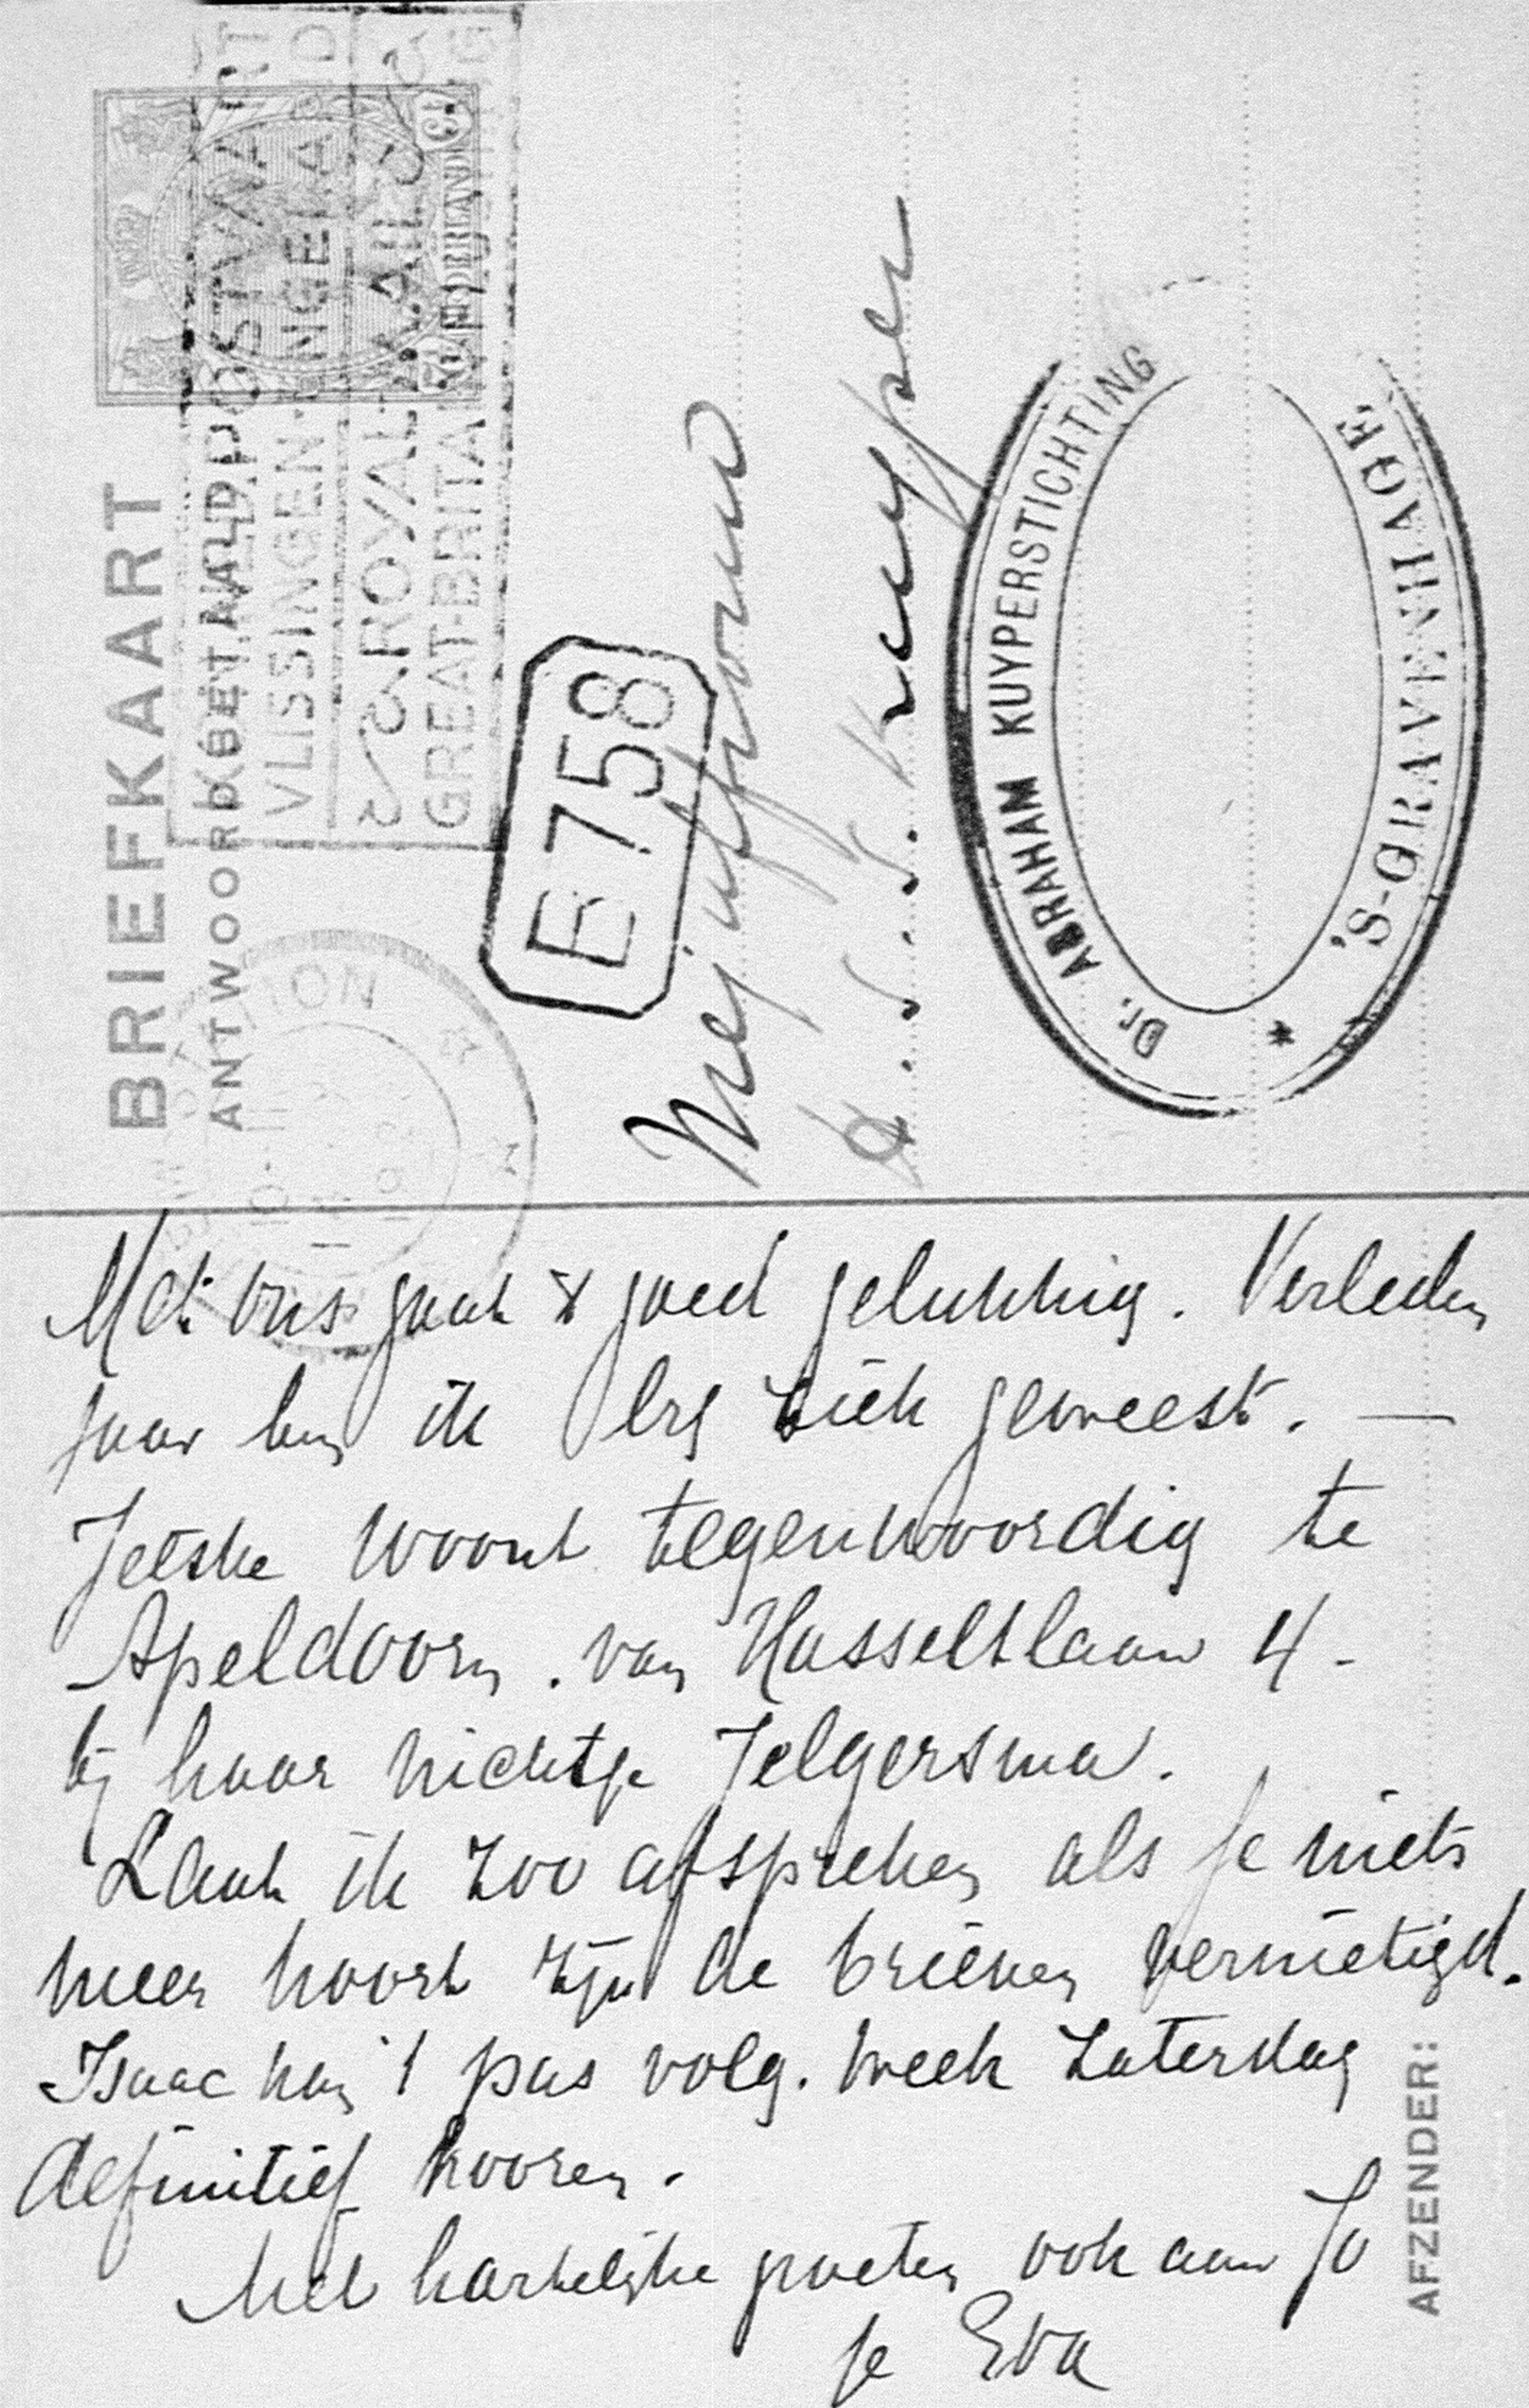 BRIEFKAART
ANTWOORD BETAALD
POSTVAART
VLISSINGEN-ENGELAND
ROYAL MAIL
GREAT-BRITAIN
NEDERLAND
7½
E 758
Mejuffrouw
Kuyper
Dr. ABRAHAM KUYPERSTICHTING
* 'S-GRAVENHAGE.
Met ons gaat 't goed gelukkig. Verleden
jaar ben ik erg ziek geweest. —
Jetske woont tegenwoordig te
Apeldoorn. van Hasseltlaan 4 -
bij haar nichtje Jelgersma.
Laat ik zoo afspreken als je niets
meer hoort zijn de brieven vernietigd.
Isaac kan 't pas volg. week Zaterdag
definitief hooren.
Met hartelijke groeten ook aan Jo
je Eva
AFZENDER: